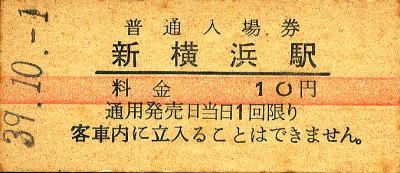 普通入場券
新横浜駅
料金 10円
通用発売日当日1回限り
客車内に立入ることはできません。
39.10.-1